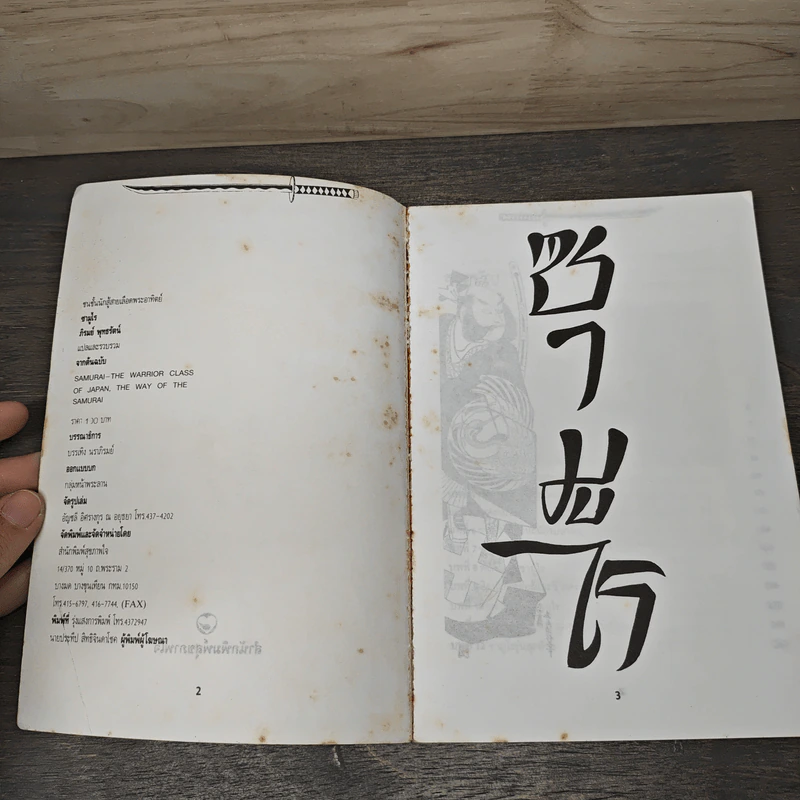 ชนชั้นนักสู้สายเลือดพระอาทิตย์
ซามูไร
ภิรมย์ พุทธรัตน์
แปลและรวบรวม
จากต้นฉบับ
SAMURAI-THE WARRIOR CLASS
OF JAPAN, THE WAY OF THE
SAMURAI
ราคา บาท
บรรณาธิการ
บรรเทิง นราภิรมย์
ออกแบบปก
กลุ่มหน้าพระลาน
จัดรูปเล่ม
อัญชลี อิศรางกูร ณ อยุธยา โทร.437-4202
จัดพิมพ์และจัดจำหน่ายโดย
สำนักพิมพ์สุขภาพใจ
14/370 หมู่ 10 ถ.พระราม 2
บางมด บางขุนเทียน กทม.10150
โทร.415-6797, 416-7744, (FAX)
พิมพ์ที่ รุ่งแสงการพิมพ์ โทร.4372947
นายประทีป สิทธิจินดาโชค ผู้พิมพ์ผู้โฆษณา
2
ซามูไร
3